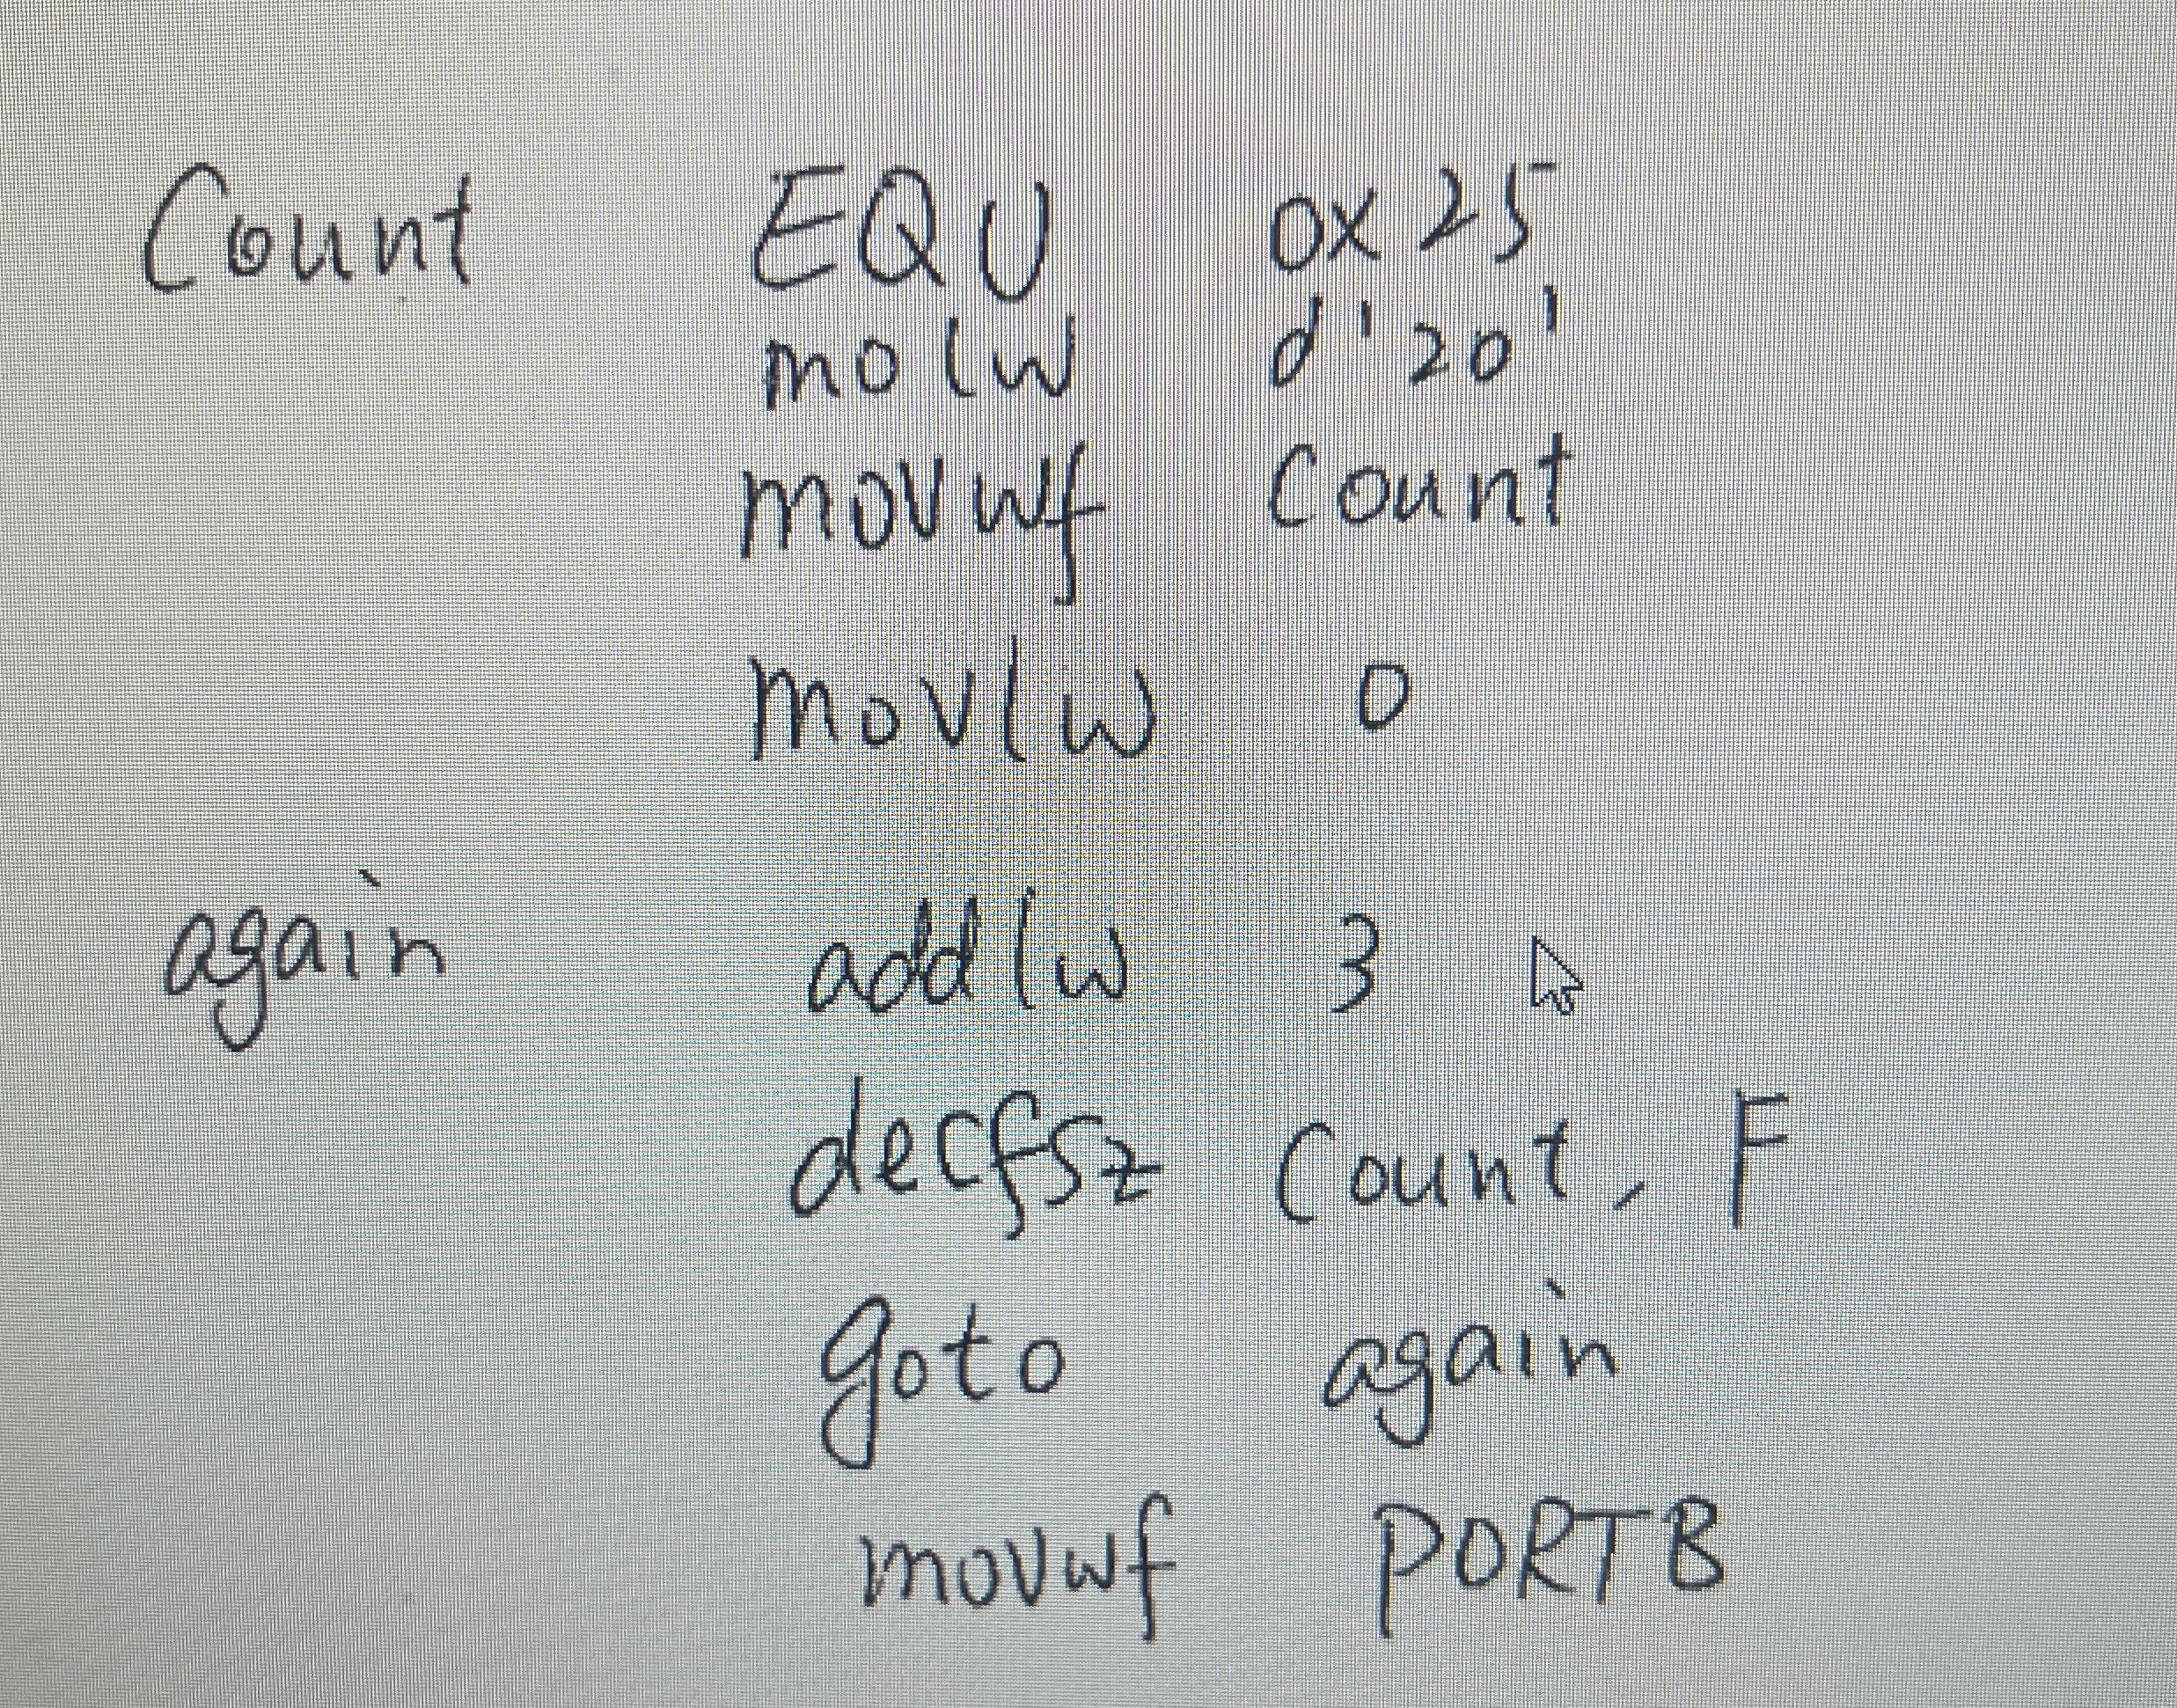 Count EQU 0x25
molw d'20'
movwf Count
Movlw 0
again addlw 3
decfsz Count, F
goto again
movwf PORTB